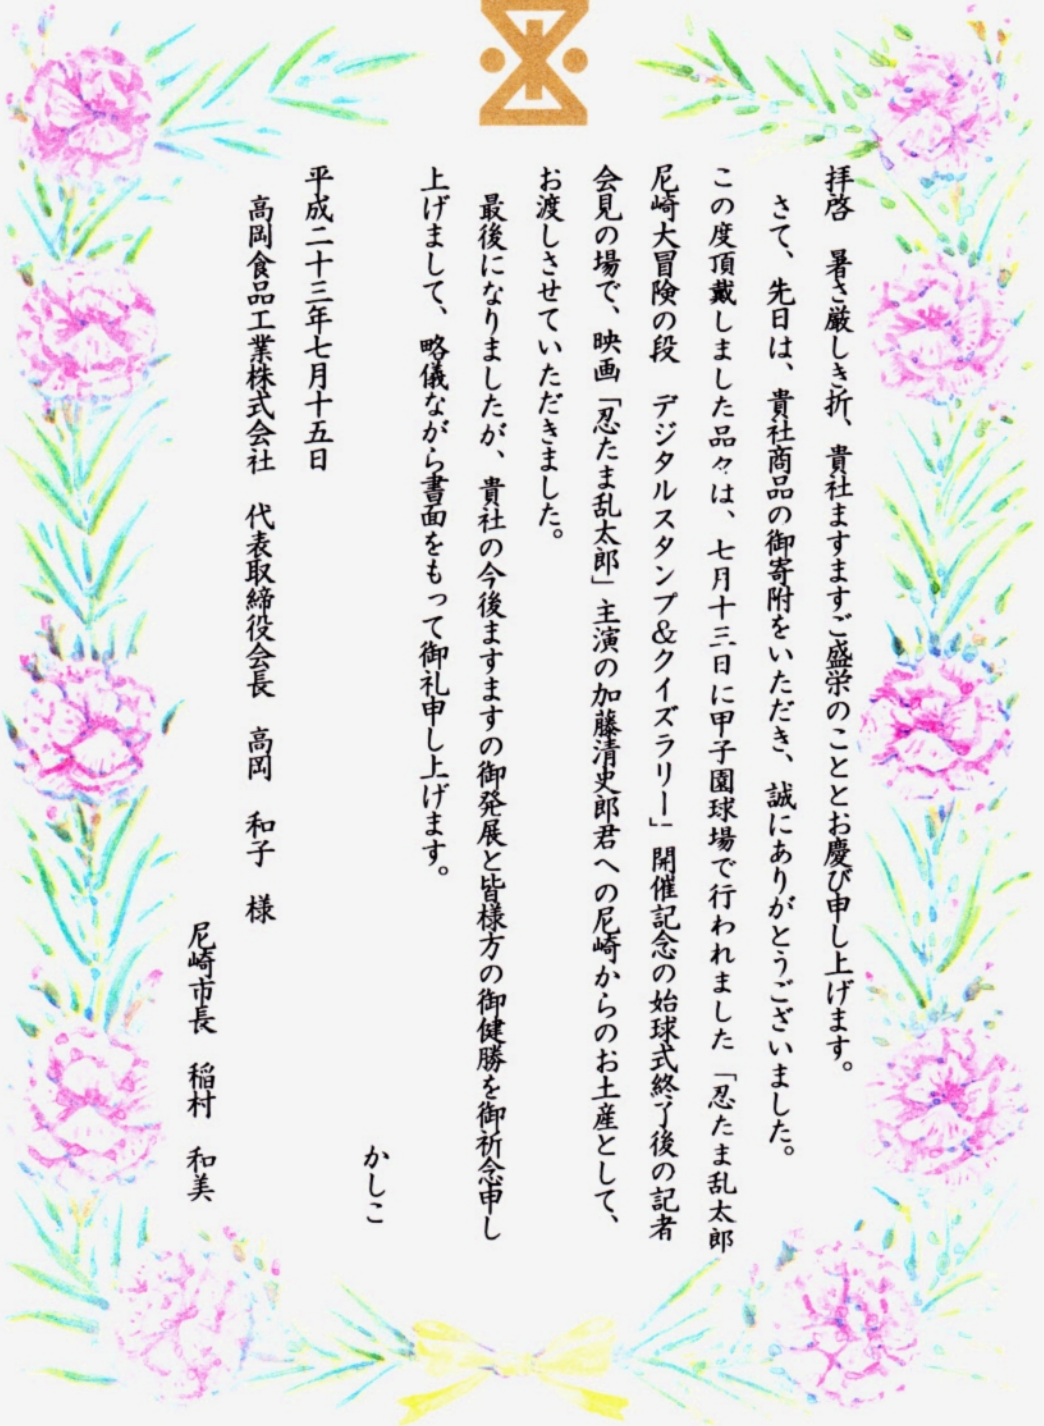 拝啓　暑さ厳しき折、貴社ますますご盛栄のこととお慶び申し上げます。
さて、先日は、貴社商品の御寄附をいただき、誠にありがとうございました。
この度頂戴しました品々は、七月十三日に甲子園球場で行われました「忍たま乱太郎
尼崎大冒険の段　デジタルスタンプ&クイズラリー」開催記念の始球式終了後の記者
会見の場で、映画「忍たま乱太郎」主演の加藤清史郎君への尼崎からのお土産として、
お渡しさせていただきました。
最後になりましたが、貴社の今後ますますの御発展と皆様方の御健勝を御祈念申し
上げまして、略儀ながら書面をもって御礼申し上げます。
かしこ
平成二十三年七月十五日
高岡食品工業株式会社　代表取締役会長　高岡　和子　様
尼崎市長　稲村　和美